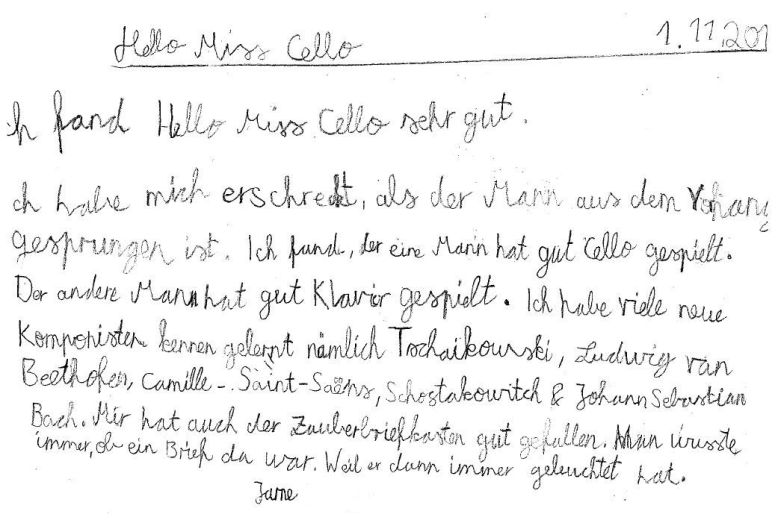 Hello Miss Cello 1.11.201
ch fand Hello Miss Cello sehr gut.
ch habe mich erschreckt, als der Mann aus dem Vohang
gesprungen ist. Ich fand, der eine Mann hat gut Cello gespielt.
Der andere Mann hat gut Klavier gespielt. Ich habe viele neue
Komponisten kennen gelernt nämlich Tschaikowski, Ludwig van
Beethofen, Camille-Saint-Saëns, Schostakowitch & Johann Sebastian
Bach. Mir hat auch der Zauberbriefkasten gut gefallen. Man wusste
immer, ob ein Brief da war. Weil er dann immer geleuchtet hat.
Jarne